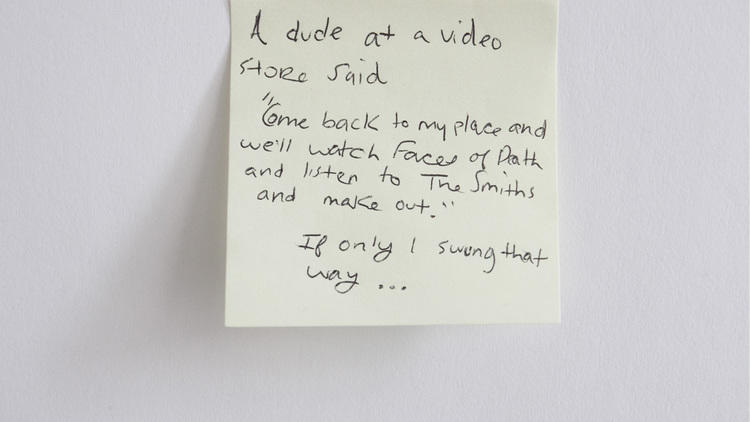 A dude at a video
store said
"Come back to my place and
we'll watch Faces of Death
and listen to The Smiths
and make out."
If only I swung that
way ...